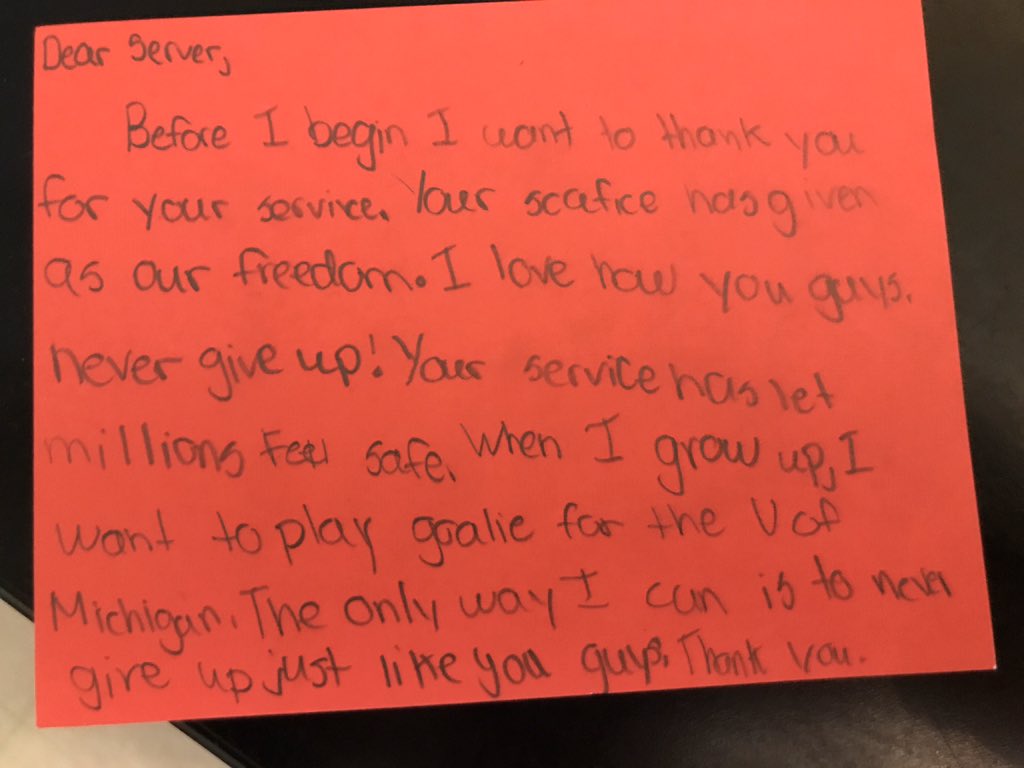 Dear Server,
Before I begin I want to thank you
for your service. Your scafice has given
as our freedom. I love how you guys.
never give up! Your service has let
millions feel safe. When I grow up, I
want to play goalie for the U of
Michigan. The only way I can is to never
give up just like you guys. Thank you.